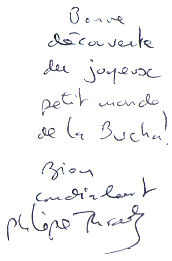 Bonne
découverte
du joyeux
petit monde
de la Bucha!
Bien
cordialement
Philippe